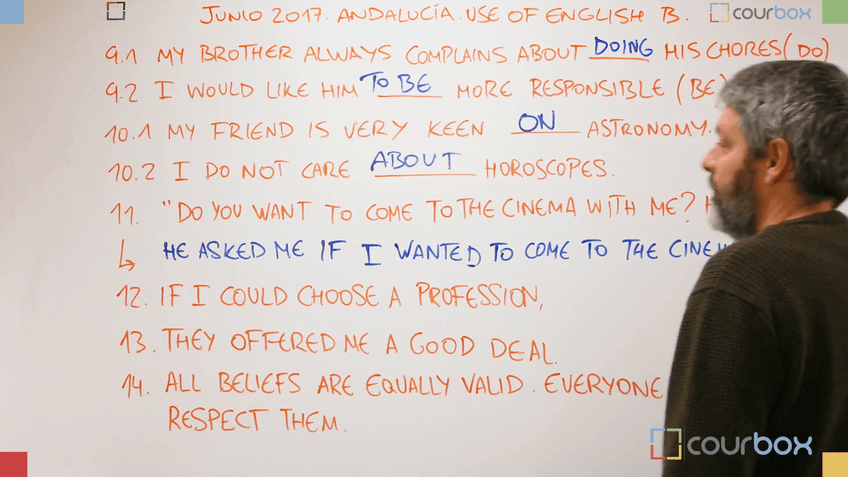 JUNIO 2017. ANDALUCÍA. USE OF ENGLISH B.
courbox
9.1 MY BROTHER ALWAYS COMPLAINS ABOUT DOING HIS CHORES (DO)
9.2 I WOULD LIKE HIM TO BE MORE RESPONSIBLE (BE)
10.1 MY FRIEND IS VERY KEEN ON ASTRONOMY.
10.2 I DO NOT CARE ABOUT HOROSCOPES.
11. "DO YOU WANT TO COME TO THE CINEMA WITH ME?
HE ASKED ME IF I WANTED TO COME TO THE
12. IF I COULD CHOOSE A PROFESSION,
13. THEY OFFERED ME A GOOD DEAL.
14. ALL BELIEFS ARE EQUALLY VALID. EVERYONE
RESPECT THEM.
courbox